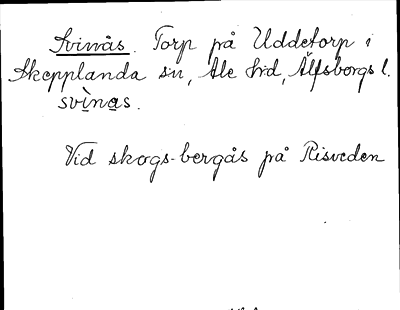 Svinås. Torp på Uddetorp i
Skepplanda sn, Ale hd, Älfsborgs l.
svìnas.
Vid skogs-bergås på Risveden